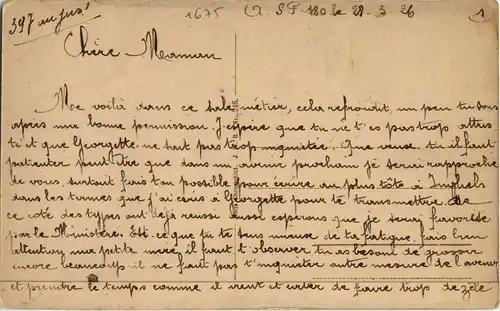 397 au jus!
x675
A. S.P. 180 le 28-3-26
1
Chère Maman
Me voilà dans ce sale métier, cela refroidit un peu tu sais
après une bonne permission. J'espère que tu ne t'es pas trop attris
té et que Georgette ne soit pas trop inquiétée. Que veux tu il faut
patienter peut être que dans un avenir prochain je serai rapproché
de vous, surtout fais ton possible pour écrire au plus tôt à
dans les termes que j'ai écris à Georgette pour te transmettre. De
ce coté des types ont déjà reussi aussi esperons que je serai favorisé
par le Ministère. Est-ce que tu te sens mieux de ta fatigue, fais bien
attention ma petite mère il faut t'observer tu as besoin de grossir
encore beaucoup il ne faut pas t'inquièter outre mesure de l'avenir
et prendre le temps comme il vient et eviter de faire trop de zèle